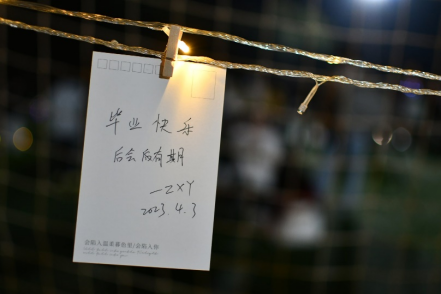 毕业快乐
后会后有期
—ZXY
2023.4.3